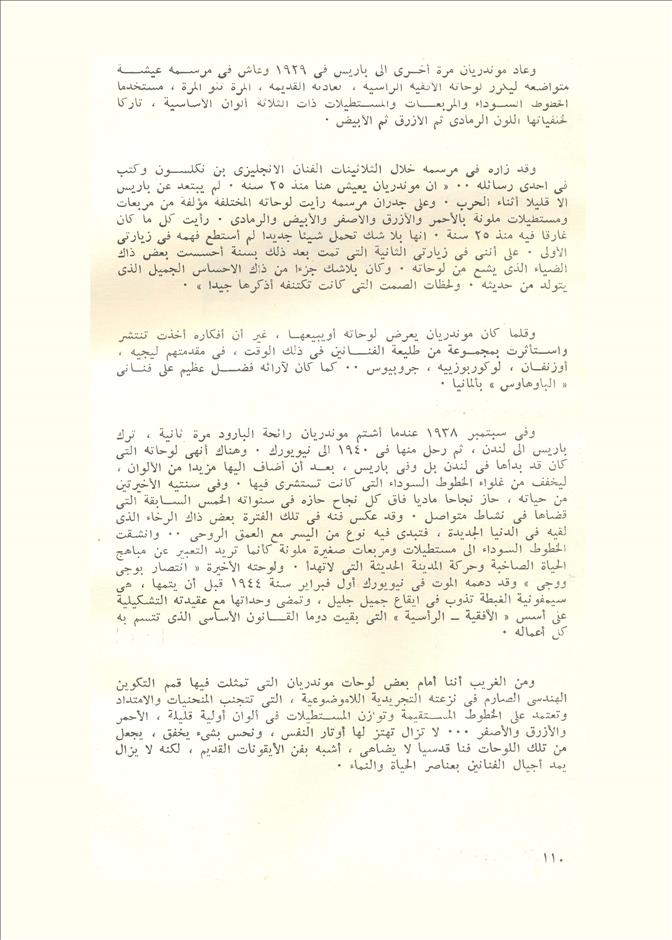 وعاد موندريان مرة أخرى الى باريس فى ١٩٢٩ وعاش فى مرسمه عيشة
متواضعه ليكرر لوحاته الأفقيه الراسية ، كعادته القديمه ، المرة تلو المرة ، مستخدما
الخطوط السوداء والمربعات والمستطيلات ذات الثلاثة ألوان الاساسية ، تاركا
لخلفياتها اللون الرمادى ثم الازرق ثم الأبيض ٠
وقد زاره فى مرسمه خلال الثلاثينات الفنان الانجليزى بن نكلسون وكتب
فى احدى رسائله ٠٠ « ان موندريان يعيش هنا منذ ٢٥ سنه ٠ لم يبتعد عن باريس
الا قليلا أثناء الحرب ٠ وعلى جدران مرسمه رأيت لوحاته المختلفة مؤلفة من مربعات
ومستطيلات ملونة بالأحمر والأزرق والاصفر والأبيض والرمادى ٠ رأيت كل ما كان
غارقا فيه منذ ٢٥ سنة ٠ انها بلا شك تحمل شيئا جديدا لم أستطع فهمه فى زيارتى
الأولى ٠ على أننى فى زيارتى الثانية التى تمت بعد ذلك بسنة أحسست بعض ذاك
الضياء الذى يشع من لوحاته ٠ وكان بلاشك جزءا من ذاك الاحساس الجميل الذى
يتولد من حديثه ٠ ولحظات الصمت التى كانت تكتنفه أذكرها جيدا » ٠
وقلما كان موندريان يعرض لوحاته أويبيعها ، غير أن أفكاره أخذت تنتشر
واستأثرت بمجموعة من طليعة الفنانين فى ذلك الوقت ، فى مقدمتهم ليجيه ،
أوزنفان ، لوكوربوزييه ، جروبيوس ٠٠ كما كان لآرائه فضل عظيم على فنانى
« الباوهاوس » بألمانيا ٠
وفى سبتمبر ١٩٣٨ عندما أشتم موندريان رائحة البارود مرة ثانية ، ترك
باريس الى لندن ، ثم رحل منها فى ١٩٤٠ الى نيويورك ٠ وهناك أنهى لوحاته التى
كان قد بدأها فى لندن بل وفى باريس ، بعد أن أضاف اليها مزيدا من الألوان ،
ليخفف من غلواء الخطوط السوداء التى كانت تستشرى فيها ٠ وفى سنتيه الأخيرتين
من حياته ، حاز نجاحا ماديا فاق كل نجاح حازه فى سنواته الخمس السابقة التى
قضاها فى نشاط متواصل ٠ وقد عكس فنه فى تلك الفترة بعض ذاك الرخاء الذى
لقيه فى الدنيا الجديدة ، فتبدى فيه نوع من اليسر مع العمق الروحى ٠٠ وانشقت
الخطوط السوداء الى مستطيلات ومربعات صغيرة ملونة كأنما تريد التعبير عن مباهج
الحياة الصاخبة وحركة المدينة الحديثة التى لاتهدا ٠ ولوحته الأخيرة « انتصار بوجى
ووجى » وقد دهمه الموت فى نيويورك أول فبراير سنة ١٩٤٤ قبل أن يتمها ، هى
سيمفونية الغبطة تذوب فى إيقاع جميل جليل ، وتمضى وحداتها مع عقيدته التشكيلية
على أسس « الأفقية ــ الرأسية » التى بقيت دوما القانون الأساسى الذى تتسم به
كل أعماله ٠
ومن الغريب أننا أمام بعض لوحات موندريان التى تمثلت فيها قمم التكوين
الهندسى الصارم فى نزعته التجريدية اللاموضوعية ، التى تتجنب المنحنيات والامتداد
وتعتمد على الخطوط المستقيمة وتوازن المستطيلات فى ألوان أولية قليلة ، الأحمر
والأزرق والأصفر ٠٠٠ لا تزال تهتز لها أوتار النفس ، ونحس بشىء يخفق ، يجعل
من تلك اللوحات فنا قدسيا لا يضاهى ، أشبه بفن الأيقونات القديم ، لكنه لا يزال
يمد أجيال الفنانين بعناصر الحياة والنماء ٠
١١٠